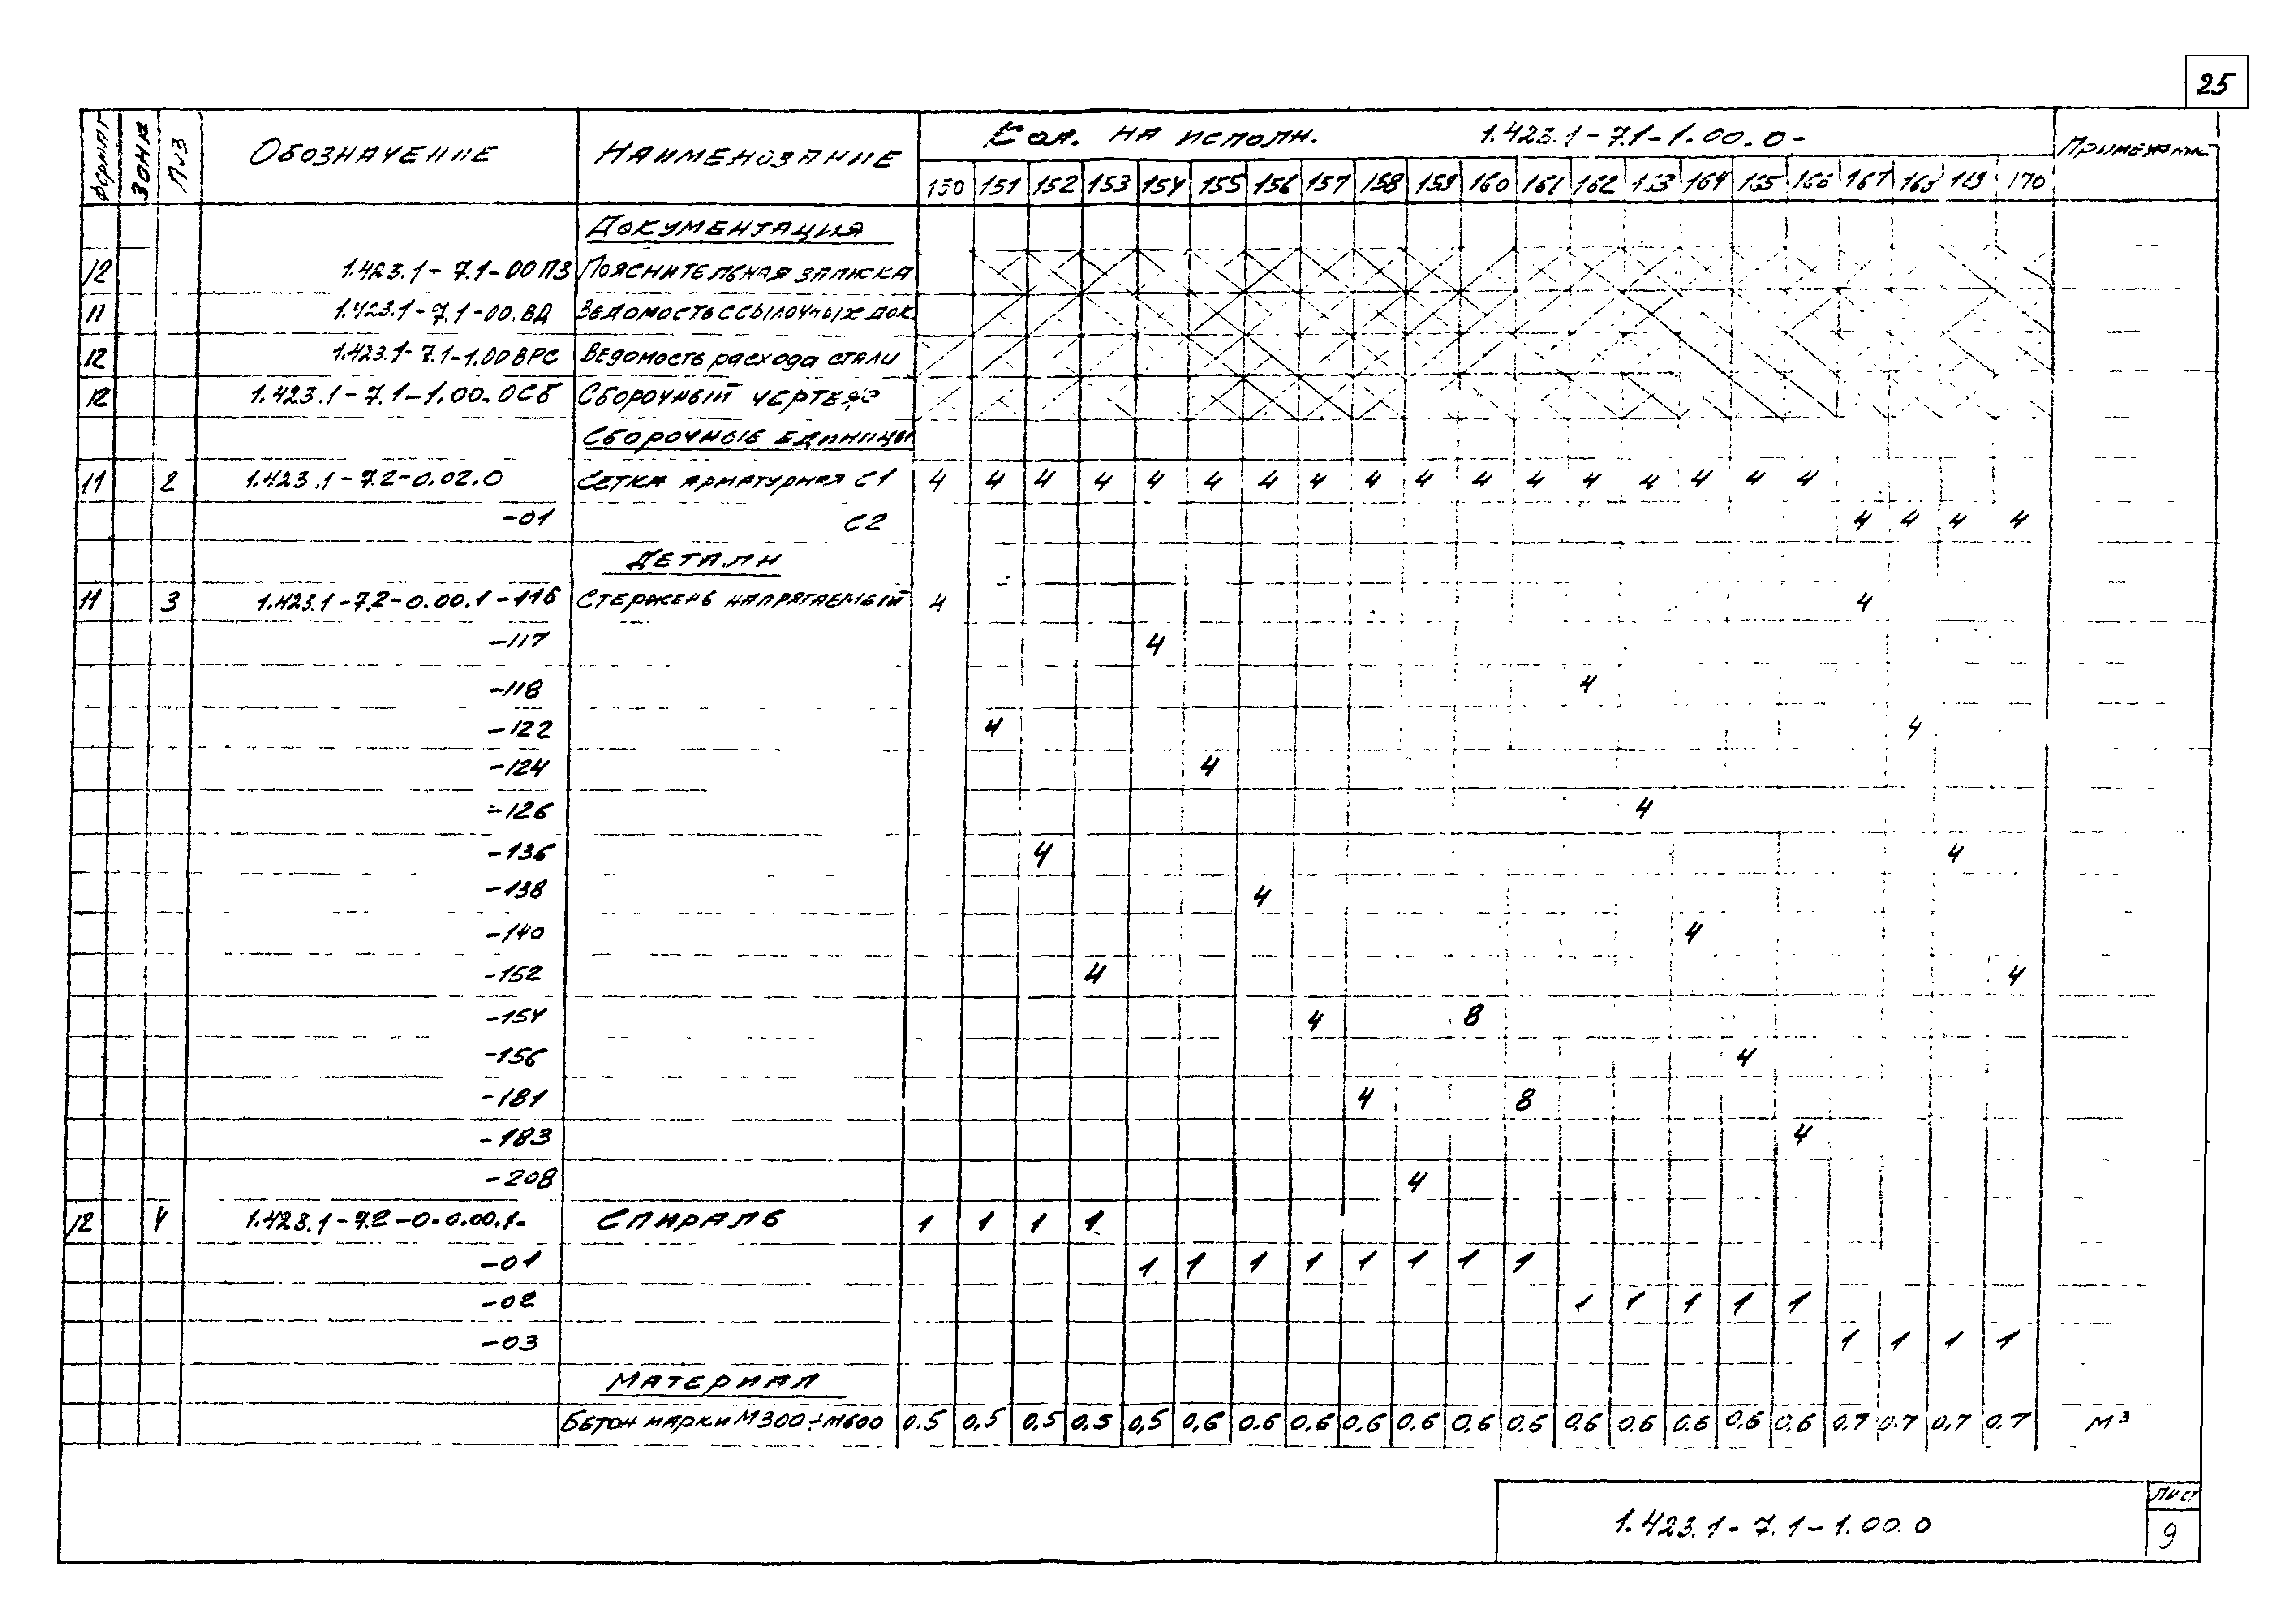 25
Формат Зона Поз Обозначение Наименование Кол. на исполн. 1.423.1-7.1-1.00.0- Примечание
150 151 152 153 154 155 156 157 158 159 160 161 162 163 164 165 166 167 168 169 170
Документация
12 1.423.1-7.1-00ПЗ Пояснительная записка
11 1.423.1-7.1-00.ВД Ведомость ссылочных док.
12 1.423.1-7.1-1.00ВРС Ведомость расхода стали
12 1.423.1-7.1-1.00.0СБ Сборочный чертеж
Сборочные единицы
11 2 1.423.1-7.2-0.02.0 Сетка арматурная С1 4 4 4 4 4 4 4 4 4 4 4 4 4 4 4 4 4
-01 С2 4 4 4 4
Детали
11 3 1.423.1-7.2-0.00.1-116 Стержень напрягаемый 4 4
-117 4
-118 4
-122 4 4
-124 4
-126 4
-136 4 4
-138 4
-140 4
-152 4 4
-154 4 8
-156 4
-181 4 8
-183 4
-208 4
12 4 1.423.1-7.2-0-0.00.1- Спираль 1 1 1 1
-01 1 1 1 1 1 1 1 1
-02 1 1 1 1 1
-03 1 1 1 1
Материал
Бетон марки М300÷М600 0.5 0,5 0,5 0.5 0,5 0,6 0.6 0.6 0.6 0.6 0,6 0.6 0.6 0.6 0.6 0.6 0.6 0.7 0.7 0,7 0.7 м³
1.423.1-7.1-1.00.0
Лист
9